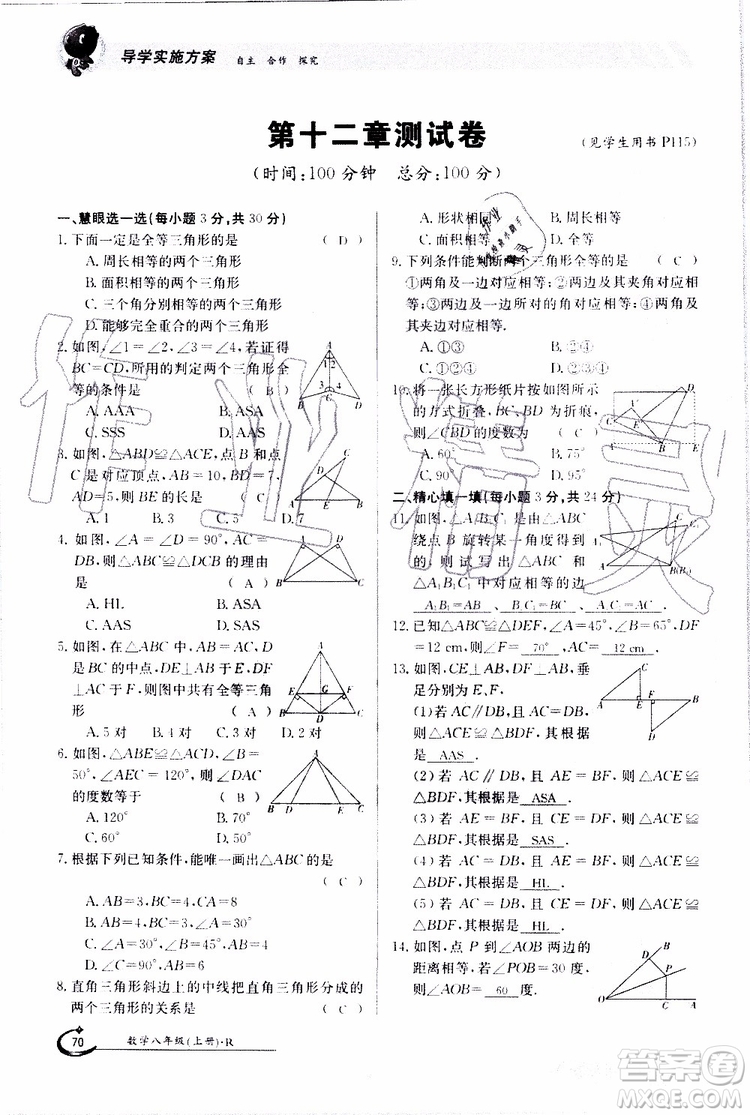 导学实施方案 自主 合作 探究
第十二章测试卷
(见学生用书 P115)
(时间:100 分钟 总分:100 分)
一、慧眼选一选(每小题 3 分,共 30 分)
1. 下面一定是全等三角形的是 ( D )
A. 周长相等的两个三角形
B. 面积相等的两个三角形
C. 三个角分别相等的两个三角形
D. 能够完全重合的两个三角形
2. 如图,∠1=∠2,∠3=∠4,若证得
BC=CD,所用的判定两个三角形全
等的条件是 ( B )
A. AAA B. ASA
C. SSS D. SAS
3. 如图,△ABD≌△ACE,点 B 和点
C 是对应顶点,AB=10,BD=7,
AD=5,则 BE 的长是 ( C )
A. 1 B. 3 C. 5 D. 7
4. 如图,∠A=∠D=90°,AC=
DB,则△ABC≌△DCB 的理由
是 ( A )
A. HL B. ASA
C. AAS D. SAS
5. 如图,在△ABC 中,AB=AC,点 D
是 BC 的中点,DE⊥AB于E,DF
⊥AC于F,则图中共有全等三角
形 ( A )
A. 5 对 B. 4 对 C. 3 对 D. 2 对
6. 如图,△ABE≌△ACD,∠B=
50°,∠AEC=120°,则∠DAC
的度数等于 ( B )
A. 120° B. 70°
C. 60° D. 50°
7. 根据下列已知条件,能唯一画出△ABC 的是
( C )
A. AB=3,BC=4,AC=8
B. AB=4,BC=3,∠A=30°
C. ∠A=30°,∠B=45°,AB=4
D. ∠C=90°,AB=6
8. 直角三角形斜边上的中线把直角三角形分成的
两个三角形的关系是 ( C )
A. 形状相同 B. 周长相等
C. 面积相等 D. 全等
9. 下列条件能判断两个三角形全等的是 ( C )
①两角及一边对应相等;②两边及一角对应
相等;③两边及其夹角对应相等;④两角及
其夹边对应相等.
A. ①③ B. ②④
C. ①③④ D. ②③④
10. 将一张长方形纸片按如图所示
的方式折叠,BC,BD 为折痕,
则∠CBD 的度数为 ( C )
A. 60° B. 75°
C. 90° D. 95°
二、精心填一填(每小题 3 分,共 24 分)
11. 如图,△A₁BC₁ 是由△ABC
绕点 B 旋转某一角度得到
的,则试写出△ABC 与
△A₁B₁C₁ 中对应相等的边
A₁B₁=AB 、 B₁C₁=BC 、 A₁C₁=AC .
12. 已知△ABC≌△DEF,∠A=45°,∠B=65°,DF
=12 cm,则∠F= 70° ,AC= 12 cm .
13. 如图,CE⊥AB,DF⊥AB,垂
足分别为 E,F,
(1)若 AC∥DB,且 AC=
DB,则△ACE≌△BDF,其根据是
AAS .
(2) 若 AC∥DB,且 AE=BF,则△ACE≌
△BDF,其根据是 ASA .
(3) 若 CE=DF,且 AE=BF,则△ACE≌
△BDF,其根据是 SAS .
(4) 若 AC=DB,且 AE=BF,则△ACE≌
△BDF,其根据是 HL .
(5) 若 AC=DB,且 CE=DF,则△ACE≌
△BDF,其根据是 HL .
14. 如图,点 P 到∠AOB 两边的
距离相等,若∠POB=30°,
则∠AOB= 60 度.
70 数学八年级(上册)·R